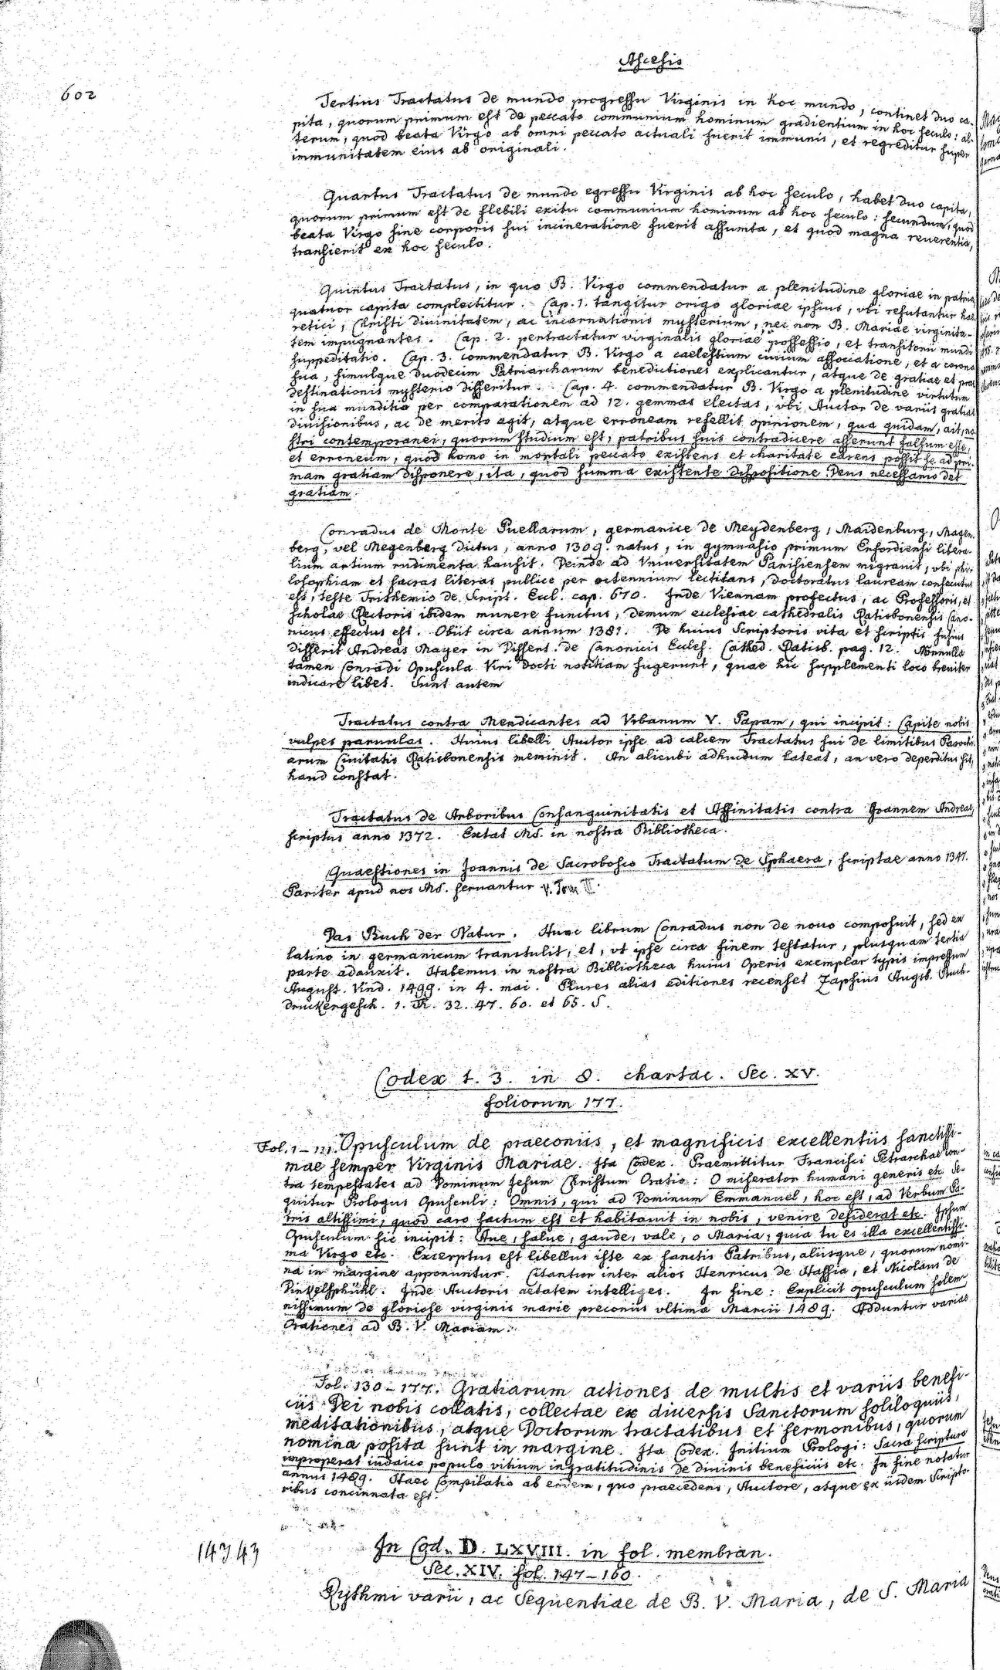 Ascesis
602
Tertius Tractatus de mundo progressu Virginis in hoc mundo, continet duo ca-
pita, quorum primum est de peccato communium hominum gradientium in hoc seculo: al-
terum, quod beata Virgo ab omni peccato actuali fuerit immunis, et regreditur super
immunitatem eius ab originali.
Quartus Tractatus de mundo egressu Virginis ab hoc seculo, habet duo capita,
quorum primum est de flebili exitu communium hominum ab hoc seculo: secundum, quod
beata Virgo sine corporis sui incineratione fuerit assumta, et quod magna reuerentia,
transierit ex hoc seculo.
Quintus Tractatus, in quo B. Virgo commendatur a plenitudine gloriae in patria
quatuor capita complectitur. Cap. 1. tangitur origo gloriae ipsius, vbi refutantur hae
retici, Christi diuinitatem, ac incarnationis mysterium, nec non B. Mariae virginita-
tem impugnantes. Cap. 2. pertractatur virginalis gloriae possessio, et transitorii mundi
suppeditatio. Cap. 3. commendatur B. Virgo a caelestium ciuium associatione, et a corona
sua, simulque duodecim Patriarcharum benedictiones explicantur, atque de gratiae et prae
destinationis mysterio differitur. Cap. 4. commendatur B. Virgo a plenitudine virtutum
in sua munditia per comparationem ad 12. gemmas electas, vbi Auctor de variis gratiae
diuisionibus, ac de merito agit, atque erroneam refellit opinionem, qua quidam, ait, no
stri contemporanei, quorum studium est, patribus suis contradicere asserunt falsum esse,
et erroneum, quod homo in mortali peccato existens et charitate carens possit se ad pri-
mam gratiam disponere, ita, quod summa existente dispositione Deus necessario det
gratiam.
Conradus de Monte Puellarum, germanice de Meydenberg, Maidenburg, Magen
berg, vel Megenberg dictus, anno 1309. natus, in gymnasio primum Erfordiensi litera-
lium artium rudimenta hausit. Deinde ad Vniuersitatem Parisiensem migrauit, vbi phi-
losophiam et sacras literas publice per octennium lectitans, doctoratus lauream consecutus
est, teste Trithemio de Script. Eccl. cap. 610. Inde Viennam profectus, ac Professoris, et
scholae Rectoris ibidem munere functus, demum ecclesiae cathedralis Ratisbonensis Cano-
nicus effectus est. Obiit circa annum 1381. De huius Scriptoris vita et scriptis fusius
differit Andreas Mayer in Dissert. de Canonicis Eccles. Cathed. Ratisb. pag. 12. Nonnulla
tamen Conradi Opuscula Viri docti notitiam fugerunt, quae hic supplementi loco breuiter
indicare libet. Sunt autem
Tractatus contra Mendicantes ad Vrbanum V. Papam, qui incipit: Capite nobis
vulpes paruulas. Huius libelli Auctor ipse ad calcem Tractatus sui de limitibus Parochi
arum Ciuitatis Ratisbonensis meminit. An alicubi adhucdum lateat, an vero deperditus sit,
haud constat.
Tractatus de Arboribus Consanguinitatis et Affinitatis contra Joannem Andreae
scriptus anno 1372. Extat Ms. in nostra Bibliotheca.
Quaestiones in Joannis de Sacrobosco Tractatum de Sphaera, scriptae anno 1347.
Pariter apud nos Ms. seruantur v. Tom II.
Das Buch der Natur. Hunc librum Conradus non de nouo composuit, sed ex
latino in germanicum transtulit, et, vt ipse circa finem testatur, plusquam tertia
parte adauxit. Habemus in nostra Bibliotheca huius Operis exemplar typis impressum
August. Vind. 1499. in 4. mai. Plures alias editiones recenset Zapfius Augsb. Buch-
druckergesch. 1. Th. 32. 47. 60. et 65. S.
Codex t. 3. in 8. chartac. Sec. XV.
foliorum 177.
Fol. 1 – Opusculum de praeconiis, et magnificis excellentiis sanctissi-
mae semper Virginis Mariae. Ita Codex. Praemittitur Francisci Petrarchae con-
tra tempestates ad Dominum Jesum Christum Oratio: O miserator humani generis etc. Se-
quitur Prologus Opusculi: Omnis, qui ad Dominum Emmanuel, hoc est, ad Verbum Pa-
tris altissimi, quod caro factum est et habitauit in nobis, venire desiderat etc. Ipsum
Opusculum sic incipit: Aue, salue, gaude, vale, o Maria, quia tu es illa excellentissi-
ma Virgo etc. Excerptus est libellus iste ex sanctis Patribus, aliisque, quorum nomi-
na in margine apponuntur. Citantur inter alios Henricus de Hassia, et Nicolaus de
Dinkelsphühl. Inde Auctoris aetatem intelliges. In fine: Explicit opusculum solem-
nissimum de gloriose virginis marie preconiis vltima Marcii 1489. Adduntur variae
Orationes ad B. V. Mariam.
Fol. 130 – 177. Gratiarum actiones de multis et variis benefi-
ciis Dei nobis collatis, collectae ex diuersis Sanctorum soliloquiis,
meditationibus, atque Doctorum tractatibus et sermonibus, quorum
nomina posita sunt in margine. Ita Codex. Initium Prologi: Sacra scriptura
improperat iudaico populo vitium ingratitudinis de diuinis beneficiis etc. In fine notatur
annus 1489. Haec Compilatio ab eodem, quo praecedens, Auctore, atque ex iisdem Scripto-
ribus concinnata est.
14343
In Cod. D. LXVIII. in fol. membran.
Sec. XIV. fol. 147–160.
Rythmi varii, ac Sequentiae de B. V. Maria, de S. Maria